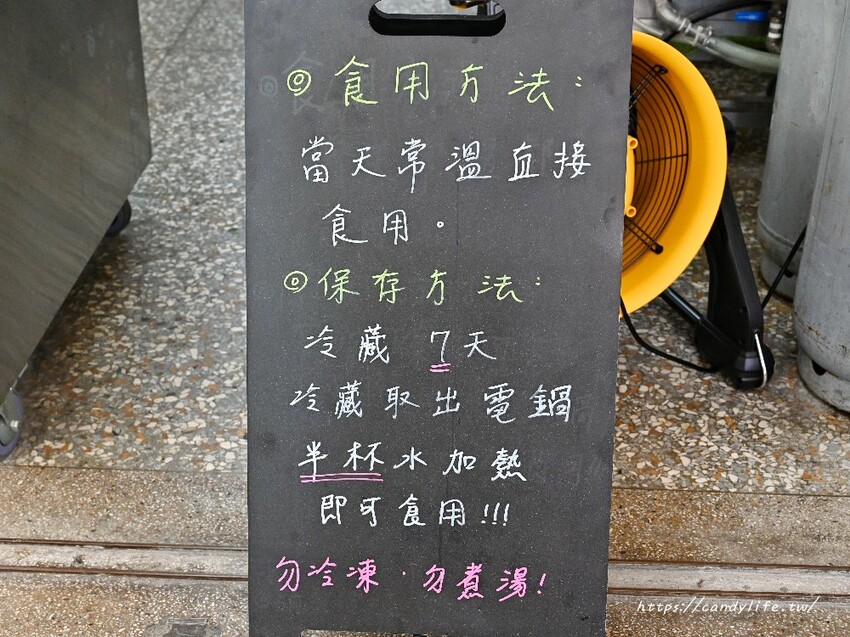 ◎食用方法：
當天常溫直接
食用。
◎保存方法：
冷藏 7天
冷藏取出電鍋
半杯水加熱
即可食用!!!
勿冷凍．勿煮湯!
https://candylife.tw/